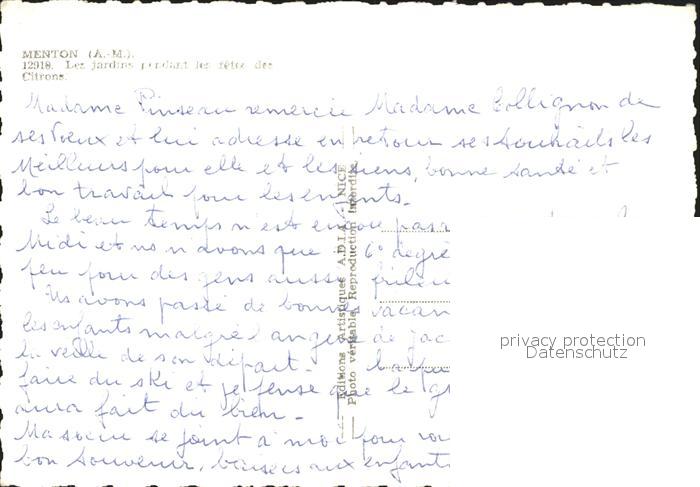 MENTON (A.-M.).
12918. Les jardins pendant les fêtes des
Citrons.
Madame Pinseau remercie Madame Collignon de
ses voeux et lui adresse en retour ses souhaits les
Meilleurs pour elle et les siens, bonne santé et
bon travail pour les enfants.
Le beau temps n'est encore pas
Midi et ns n'avons que 6° degré
peu pour des gens aussi frileu
Ns avons passé de bonnes vacan
les enfants malgré l'angine de Jac
la veille de son départ.
faire du ski et je pense que le gr
aura fait du bien.
Ma soeur se joint à moi pour vo
bon souvenir, baisers aux enfants
Editions Artistiques A.D.I.A. - NICE
Photo véritable, Reproduction Interdite
privacy protection
Datenschutz